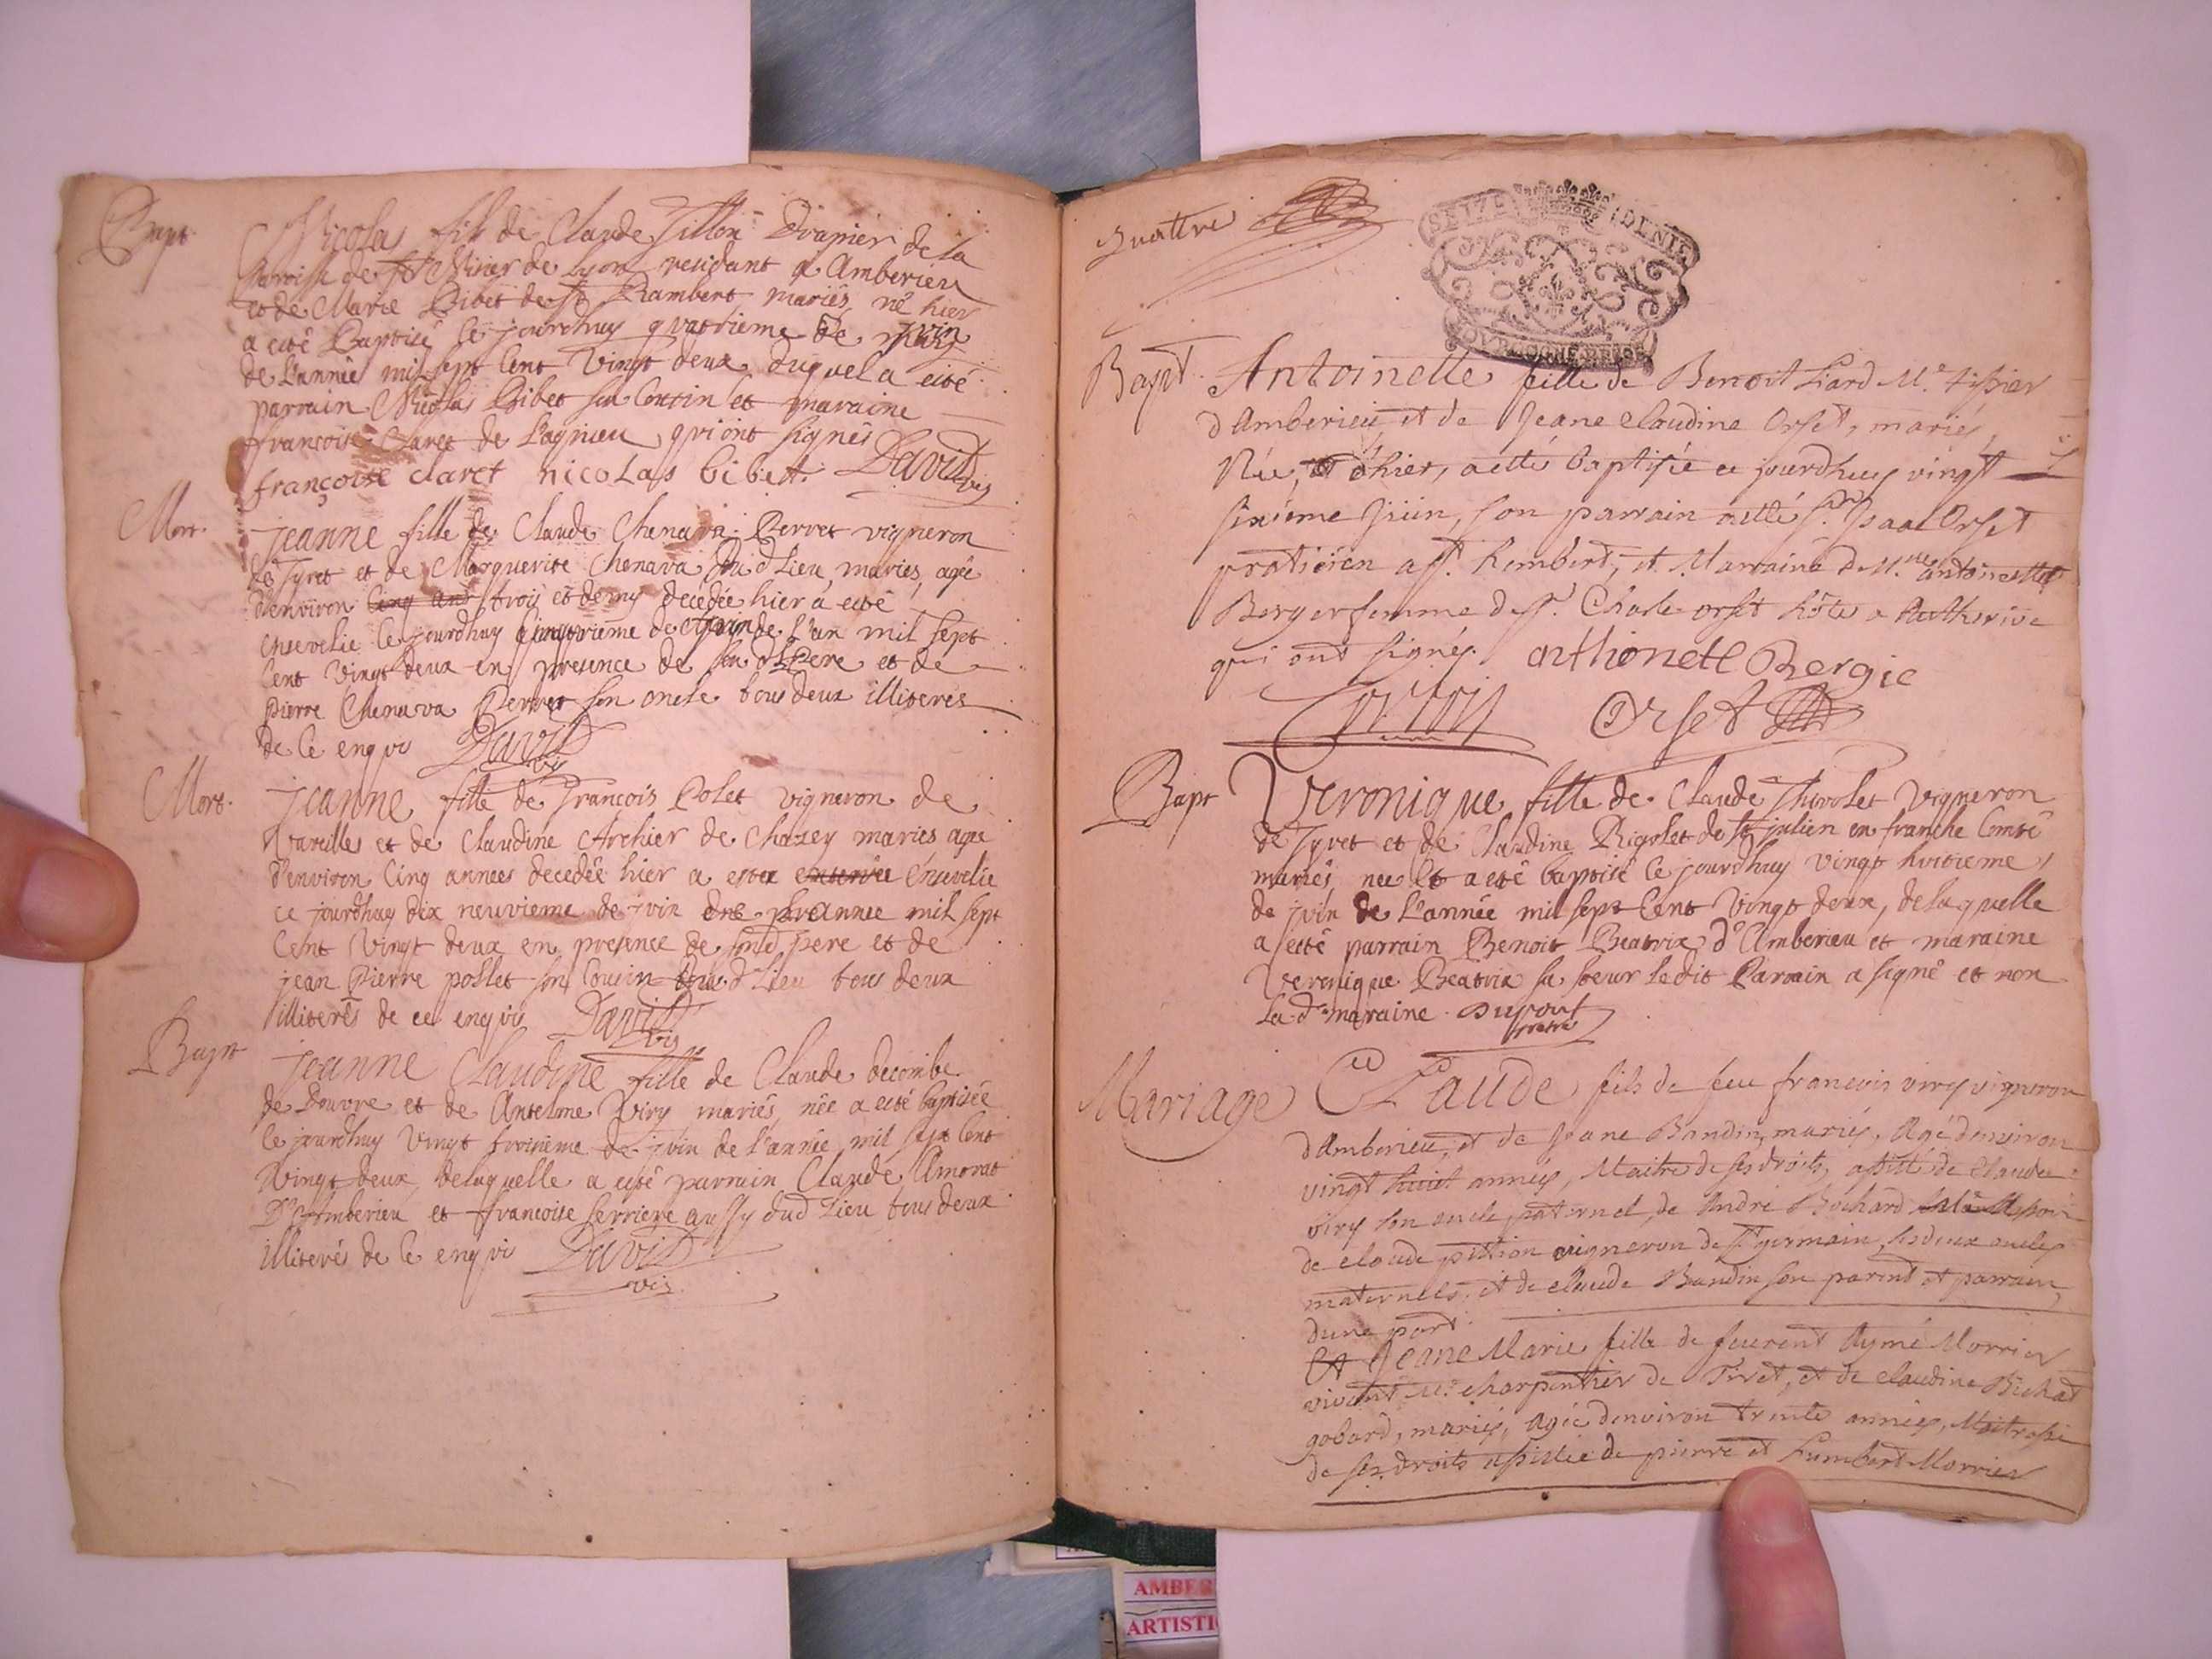 Bapt.
Nicolas fils de Claude Tillon Drapier de la
Paroisse de St Nisier de Lyon residant a Amberieu
et de Marie Bibet de St Rambert mariés né hier
a eté Baptisé ce jourdhuy quatrieme de juin
de l'année mil sept cent vingt deux duquel a eité
parrain Nicolas Bibet son Cousin et maraine
françoise Claret de Lagnieu qui ont signés
françoise claret nicolas bibet. David vic
Mort.
jeanne fille de Claude Chenava Perret vigneron
de Tyret et de Marguerite Chenava du d Lieu mariés, agée
d'environ cinq ans trois et demy decedée hier a eité
ensevelie ce jourdhuy de juin de l'an mil sept
cent vingt deux en presence de son d Pere et de
pierre Chenava Perret son oncle tous deux illiterés
de ce enquis David vic
Mort.
jeanne fille de françois Polet vigneron de
Vareilles et de Claudine Archier de Chazey mariés agée
d'environ cinq années decedée hier a esté ensevelie
ce jourdhuy dix neuvieme de juin année mil sept
cent vingt deux en presence de sond pere et de
jean Pierre pollet son Cousin dud Lieu tous deux
illiterés de ce enquis David vic
Bapt
jeanne Claudine fille de Claude decombe
de Douvre et de Antelme Viry mariés, née a eité baptisée
ce jourdhuy vingt troisieme de juin de l'année mil sept cent
vingt deux, delaquelle a eité parrain Claude Amorat
D'Amberieu et françoise ferriere aussy dud Lieu tous deux
illiterés de ce enquis David
vic.
Quattre
SEIZE DENIE
BOURGOGNE BRESSE
Bapt. Antoinette fille de Benoit Liard Me tissier
d'Amberieu et de Jeane Claudine Orset, mariés,
Née, hier, a etté baptisée ce jourdhuy vingt
sixième Jüin, son parrain a etté Sr. Isaac Orset
praticien a St. Rembert, et Marraine antoinette
Berger femme de Sr. Charle orset hôte a Authrive
qui ont signés. anthonete Bergie
Orset
Bapt Veronique fille de Claude Thivolet Vigneron
de Tyret et de Claudine Rigolet de St julien en franche Comté
mariés née et a eté baptisé ce jourdhuy vingt huitieme
de juin de l'année mil sept cent vingt deux, delaquelle
a eité parrain Benoit Beatrix d'Amberieu et maraine
Veronique Beatrix sa soeur ledit Parrain a signé et non
la de maraine. Dupont
pretre
Mariage Claude fils de feu francois viry vigneron
d'Amberieu, et de Jeane Baudin, mariés, Agé denviron
vingt huit années, Maitre de ses droits, assisté de Claude
viry son oncle paternel, de André Bochard
de claude pittion vigneron de St germain, ses deux oncles
maternels, et de claude Baudin son parent et parrain,
dune part.
Et Jeane Marie fille de feu Aymé Morrier
vivant Me. charpentier de Tiret, et de Claudine Bichat
gobard, mariés, agée denviron trente années, Maitresse
de ses droits assistée de pierre et humbert Morrier
AMBER
ARTISTI